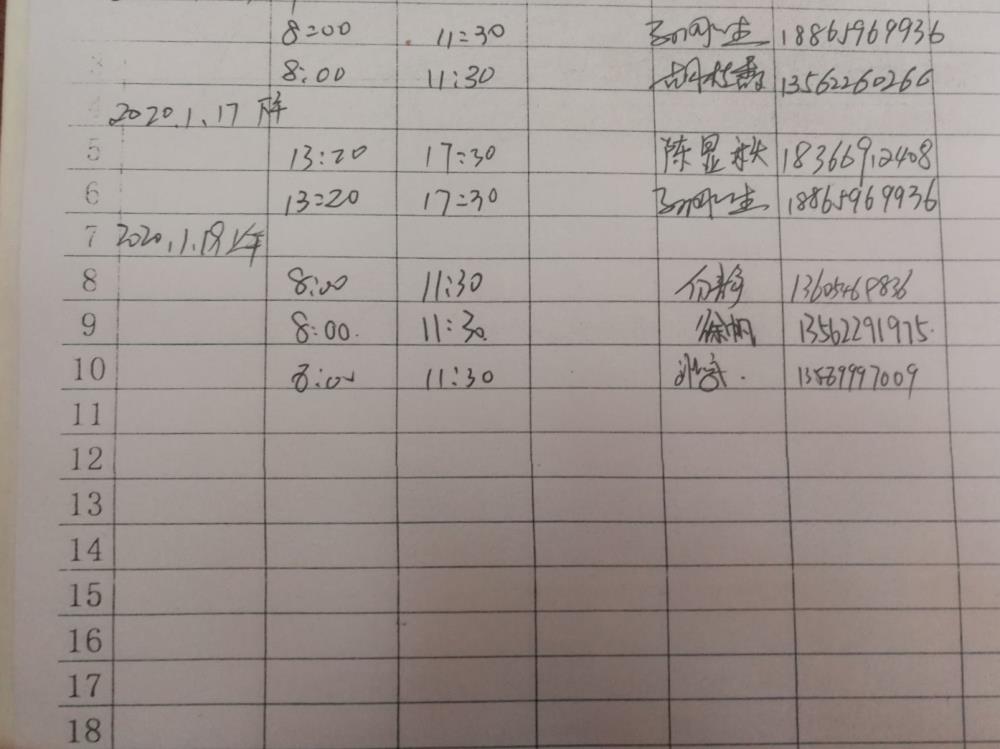 8:00 11:30 18865969936
3 8:00 11:30 13562260266
4 2020.1.17 下午
5 13:20 17:30 陈显 18366912408
6 13:20 17:30 18865969936
7 2020.1.19上午
8 8:00 11:30 13605469836
9 8:00. 11:30 徐帆 13562291975.
10 8:00 11:30 13589997009
11
12
13
14
15
16
17
18